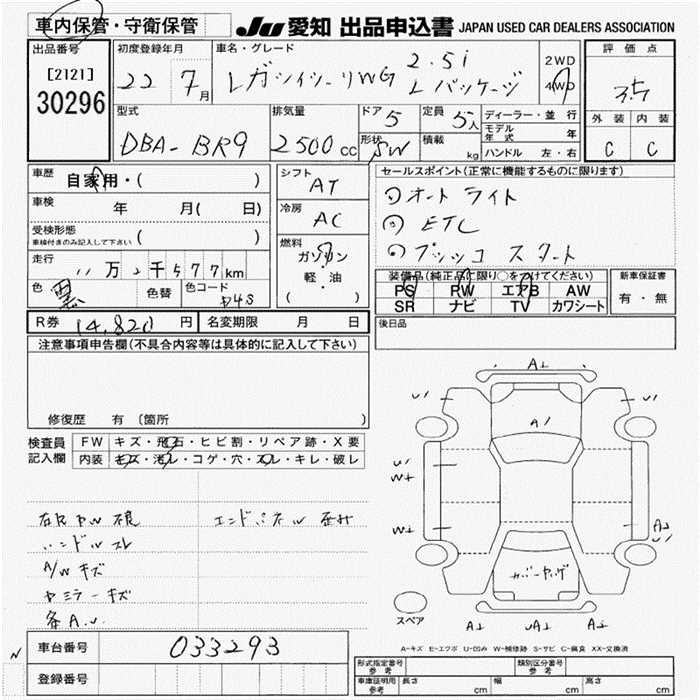 車内保管・守衛保管
JU 愛知 出品申込書 JAPAN USED CAR DEALERS ASSOCIATION
出品番号
[2121]
30296
初度登録年月
22 7月
車名・グレード
レガシィツーリWG 2.5i Lパッケージ
2WD
4WD
評価点
3.5
外装 内装
C C
型式
DBA-BR9
排気量
2500cc
ドア 5
形状 SW
定員 5人
積載 kg
ディーラー・並行
モデル年式 年
ハンドル 左・右
車歴
自家用・( )
車検 年 月( 日)
受検形態
車検付きのみ記入して下さい ( )
走行 11万2千577km
色 黒 色替 色コード D4S
シフト
AT
冷房
AC
燃料
ガソリン
軽・油
( )
セールスポイント(正常に機能するものに限ります)
① オート ライト
② ETC
③ プッシュ スタート
装備品(純正品に限り○を付けてください)
PS PW エアB AW
SR ナビ TV カワシート
新車保証書
有・無
後日品
R券 14,820円 名変期限 月 日
注意事項申告欄(不具合内容等は具体的に記入して下さい)
修復歴 有 (箇所 )
検査員記入欄
FW キズ・飛石・ヒビ割・リペア跡・X要
内装 キズ・汚レ・コゲ・穴・スレ・キレ・破レ
ハンドルスレ
A/W キズ
ドアミラーキズ
各A.U.
エンドパネル
A1
U1
U1
A1
U1
W1
W1
A1
カバーヤケ
スペア
A1
A1
A-キズ E-エクボ U-凹み W-補修跡 S-サビ C-腐食 XX-交換済
車台番号 033293
登録番号
形式指定番号
参考
類別区分番号
参考
車庫証明用
参考
長さ cm 幅 cm 高さ cm